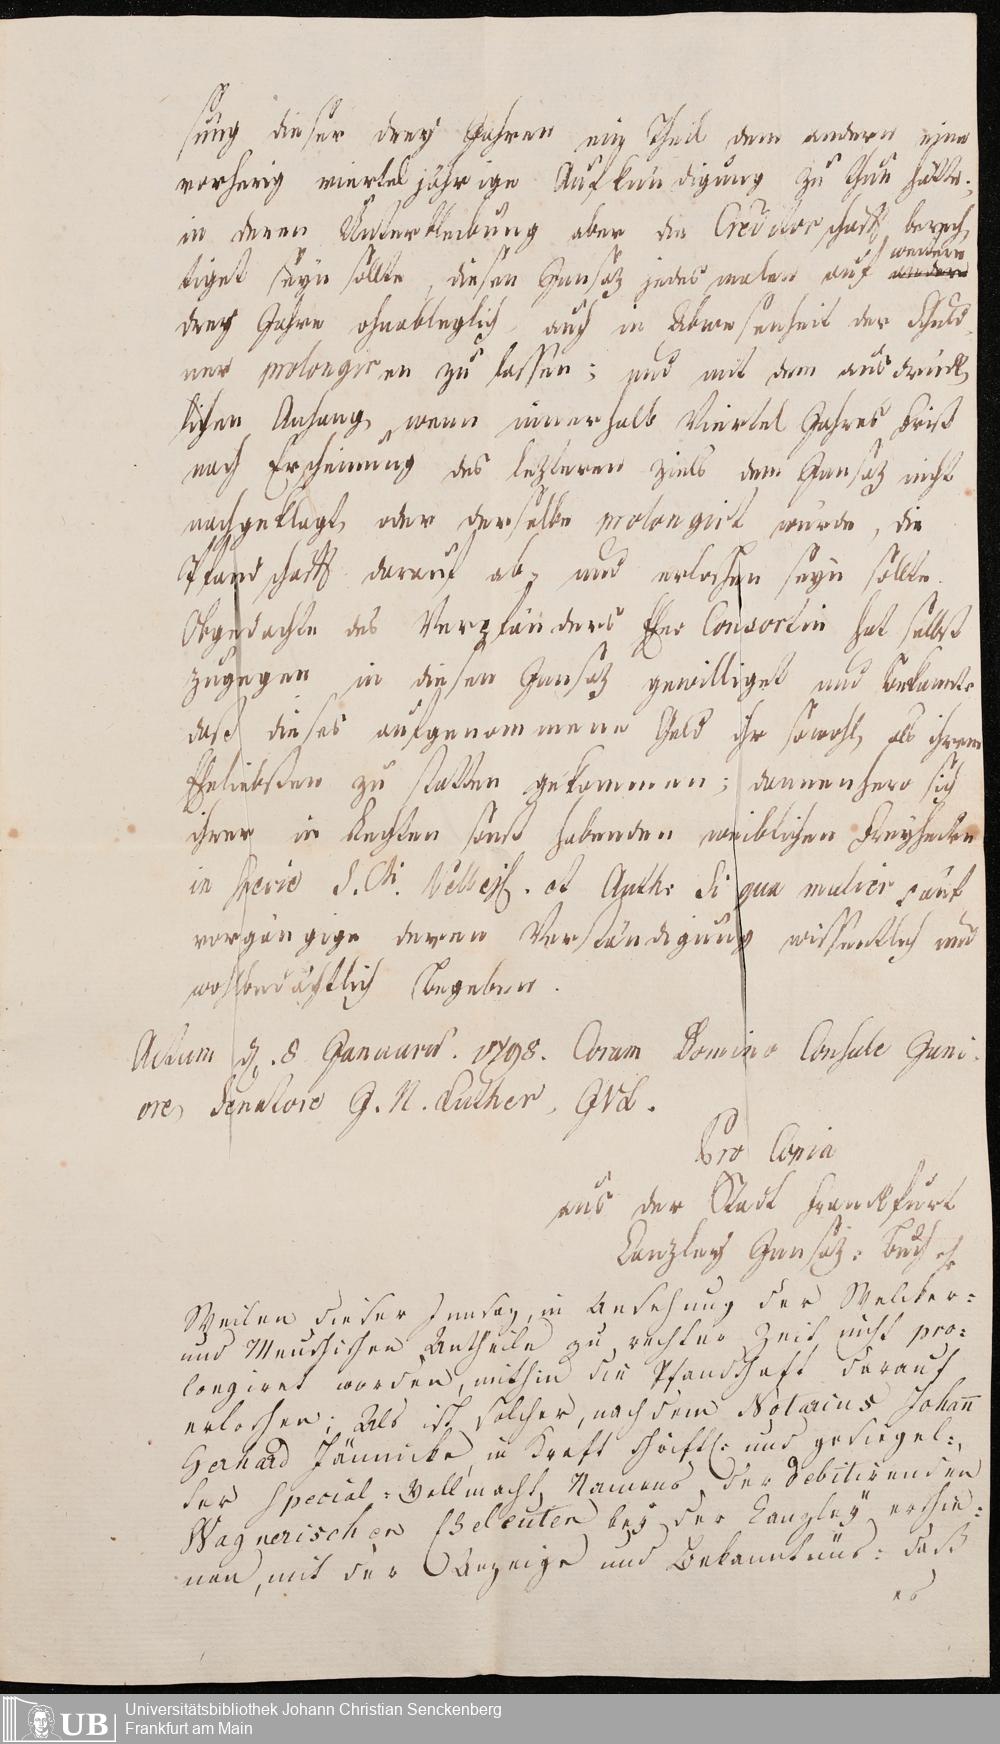 sung dieser drey Jahren ein Theil dem andern eine
vorherig vierteljährige Aufkündigung zu thun hätte;
in deren Unterbleibung aber die Creditorschafft berech„
tiget seyn sollte, diesen Innsatz jedesmalen auf weitere andere
drey Jahre ohnableglich auch in Abwesenheit der Schuld„
ner prolongiren zu lassen; und mit dem ausdrück„
lichen Anhang, wenn innerhalb Viertel Jahres Frist
nach Erscheinung des letzteren Ziels dem Innsatz nicht
nachgeklagt, oder derselbe prolongirt wurde, die
Pfandschafft darauf ab- und erloschen seyn sollte.
Obgedachte des Verpfänders Ehe Consortin hat selbst
zugegen in diesen Innsatz gewilliget und bekannte
daß dieses aufgenommene Geld ihr sowohl, als ihrem
Eheliebsten zu statten gekommen; dannenhero sich
ihrer in Rechten sonst habenden weiblichen Freyheiten
in specie S. Cti. Vellej. et Auth: Si qua mulier, auf
vorgängige deren Verständigung wissentlich und
wohlbedächtlich begeben.
Actum d. 8 Januarii. 1798. Coram Domino Consule Juni„
ore, Senatore J. N. Luther, JVL.
Pro Copia
aus der Stadt Franckfurt
Canzley Innsatz-Buch
Weilen dieser Innsaz, in Ansehung der Welcker=
und Meuschischen Antheile zu rechter Zeit nicht pro=
longiret worden, mithin die Pfandschaft darauf
erloschen; Als ist solcher, nachdem Notarius Johann
Gerhard Jännicke, in Kraft schriftl: und gesiegel=
ter Special=Vollmacht, Namens der debitirenden
Wagnerischen Eheleuten bey der Canzley erschie=
nen, mit der Anzeige und Bekanntnüs: daß
es
Universitätsbibliothek Johann Christian Senckenberg
Frankfurt am Main
UB